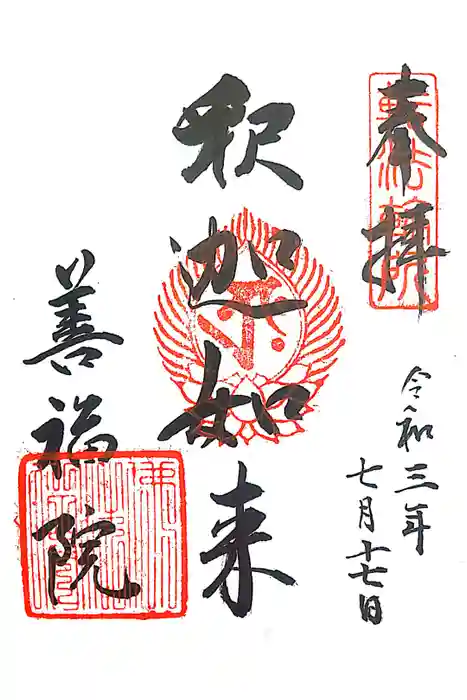 奉拝
令和三年
七月十七日
釈迦如来
善福院